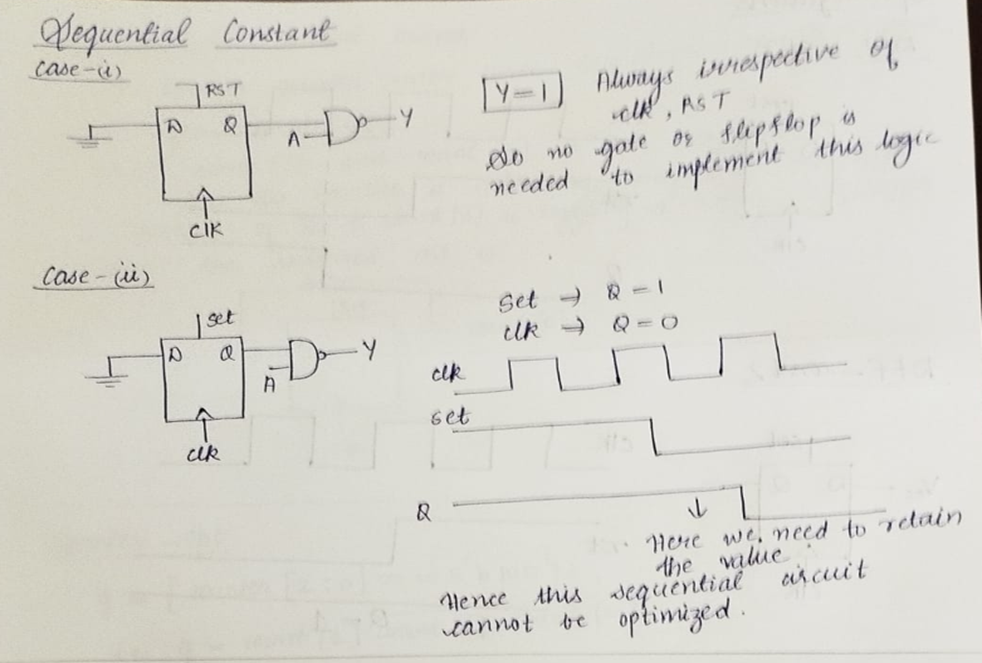 Sequential Constant
Case-(i)
RST
D Q
A
Y
clk
Y=1 Always irrespective of
clk, RST
So no gate or flipflop is
needed to implement this logic
Case-(ii)
set
D Q
A
Y
clk
Set → Q=1
clk → Q=0
clk
set
Q
↓
Here we need to retain
the value.
Hence this sequential circuit
cannot be optimized.